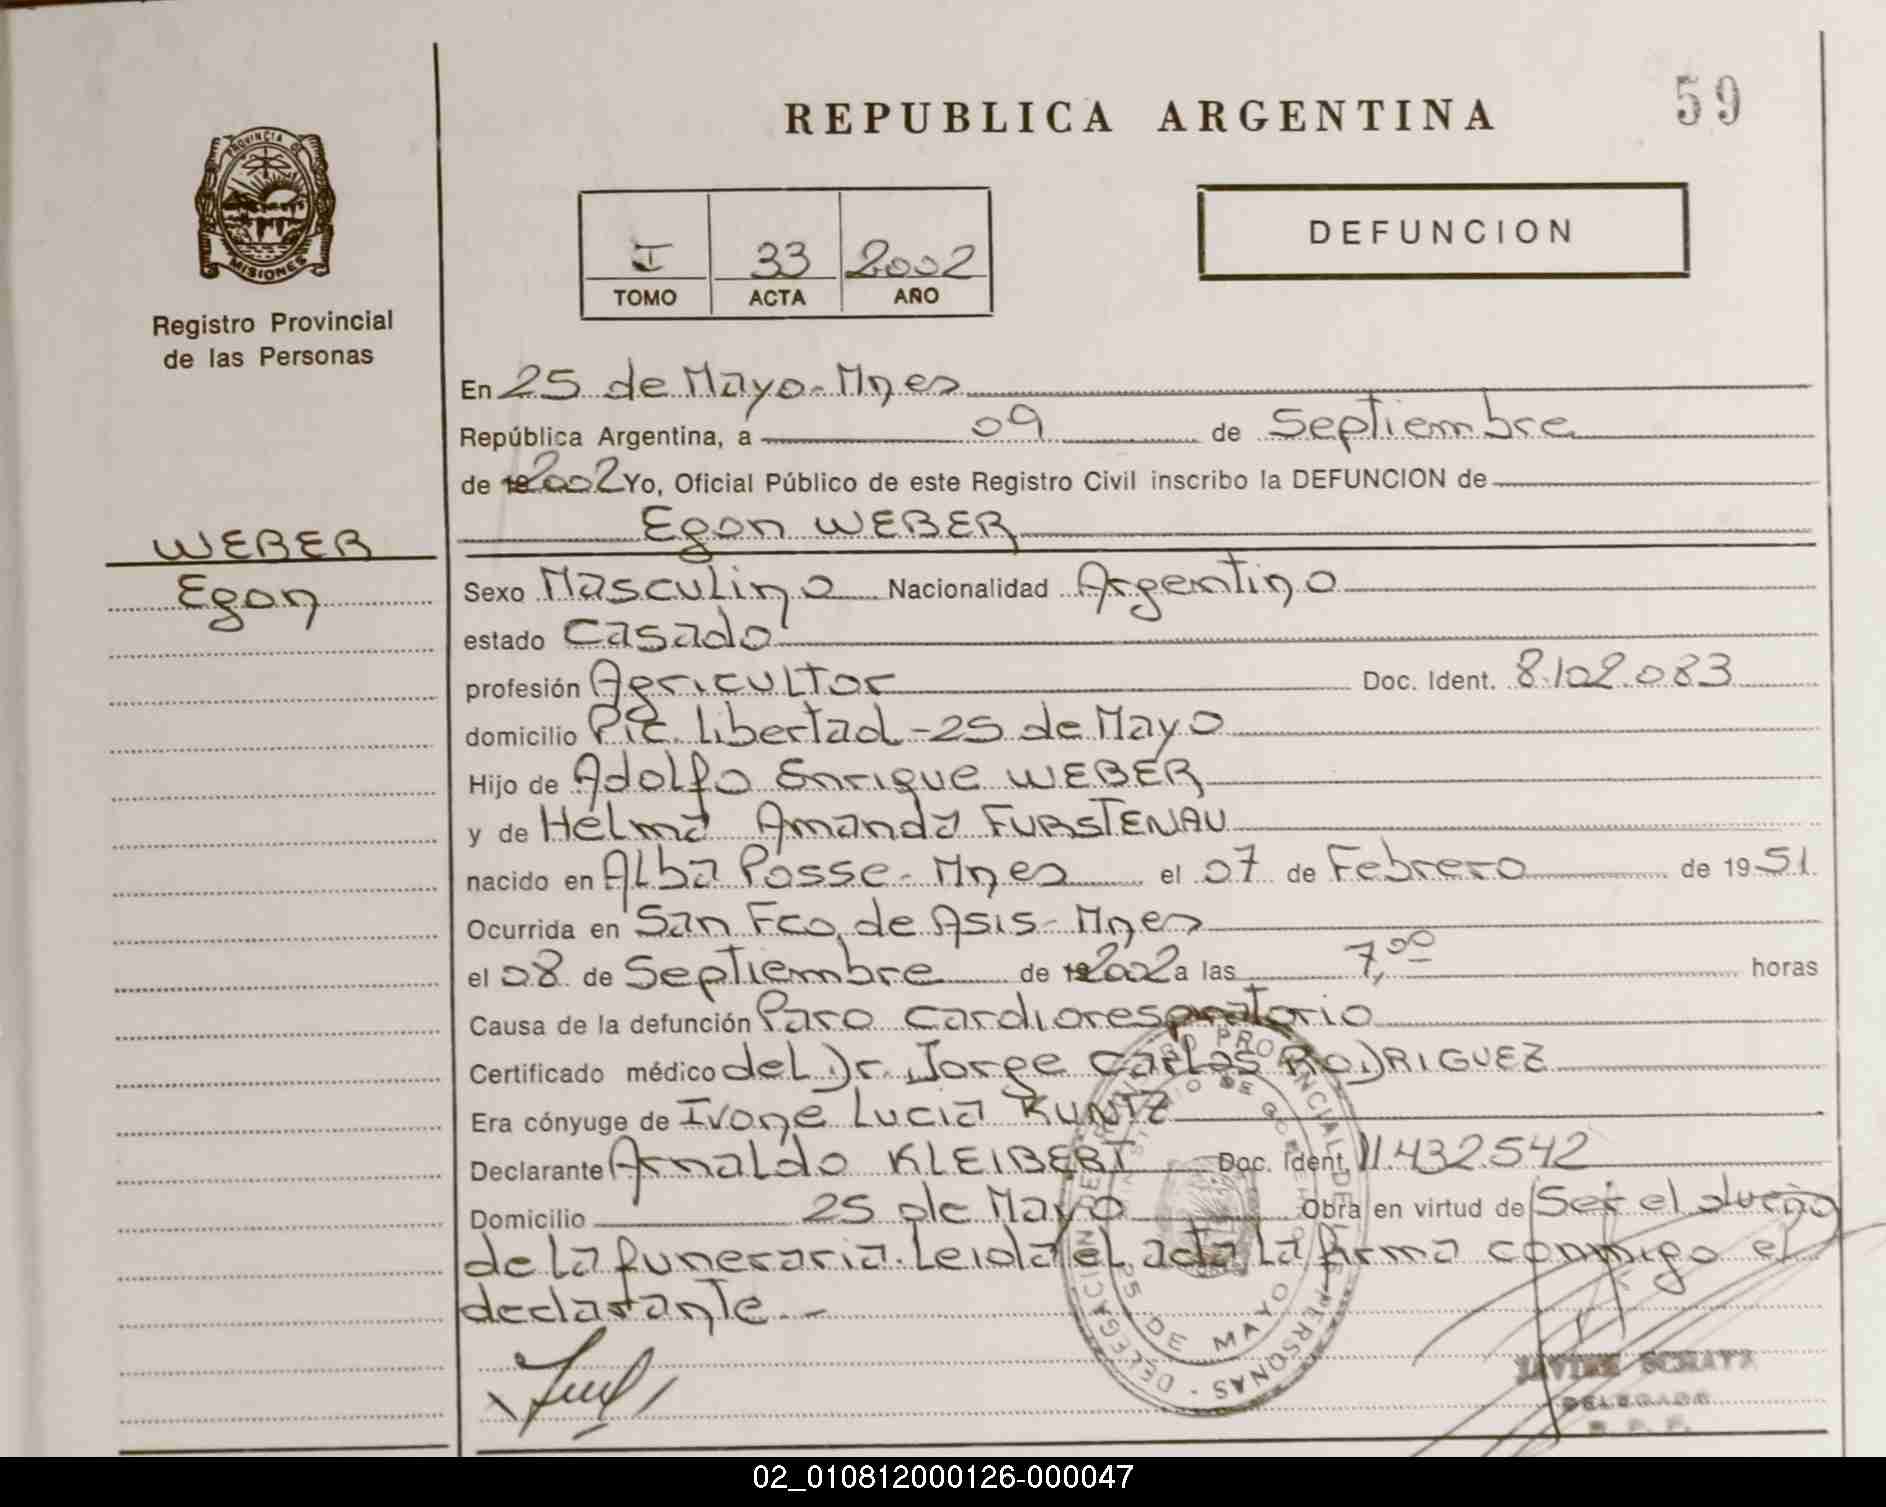 59
REPUBLICA ARGENTINA
PROVINCIA DE
MISIONES
Registro Provincial
de las Personas
I 33 2002
TOMO ACTA AÑO
DEFUNCION
En 25 de Mayo-Mnes
República Argentina, a 09 de Septiembre
de 2002 Yo, Oficial Público de este Registro Civil inscribo la DEFUNCION de
Egon WEBER
WEBER
Egon
Sexo Masculino Nacionalidad Argentino
estado Casado
profesión Agricultor Doc. Ident. 8.102.083
domicilio Pic. Libertad-25 de Mayo
Hijo de Adolfo Enrique WEBER
y de Helma Amanda FURSTENAU
nacido en Alba Posse-Mnes el 07 de Febrero de 1951.
Ocurrida en San Fco. de Asis-Mnes
el 08 de Septiembre de 2002 a las 7,00 horas
Causa de la defunción Paro cardiorespiratorio
Certificado médico del Dr. Jorge Carlos RODRIGUEZ
Era cónyuge de Ivone Lucia KUNTZ
Declarante Arnaldo KLEIBERT Doc. Ident. 11.432.542
Domicilio 25 de Mayo Obra en virtud de Ser el dueño
de la funeraria. Leida el acta la firma conmigo el
declarante.-
REGISTRO PROVINCIAL DE LAS PERSONAS - DELEGACION
MINISTERIO DE GOBIERNO
25 DE MAYO
JAVIER
DELEGADO
R. P. P.
02_010812000126-000047